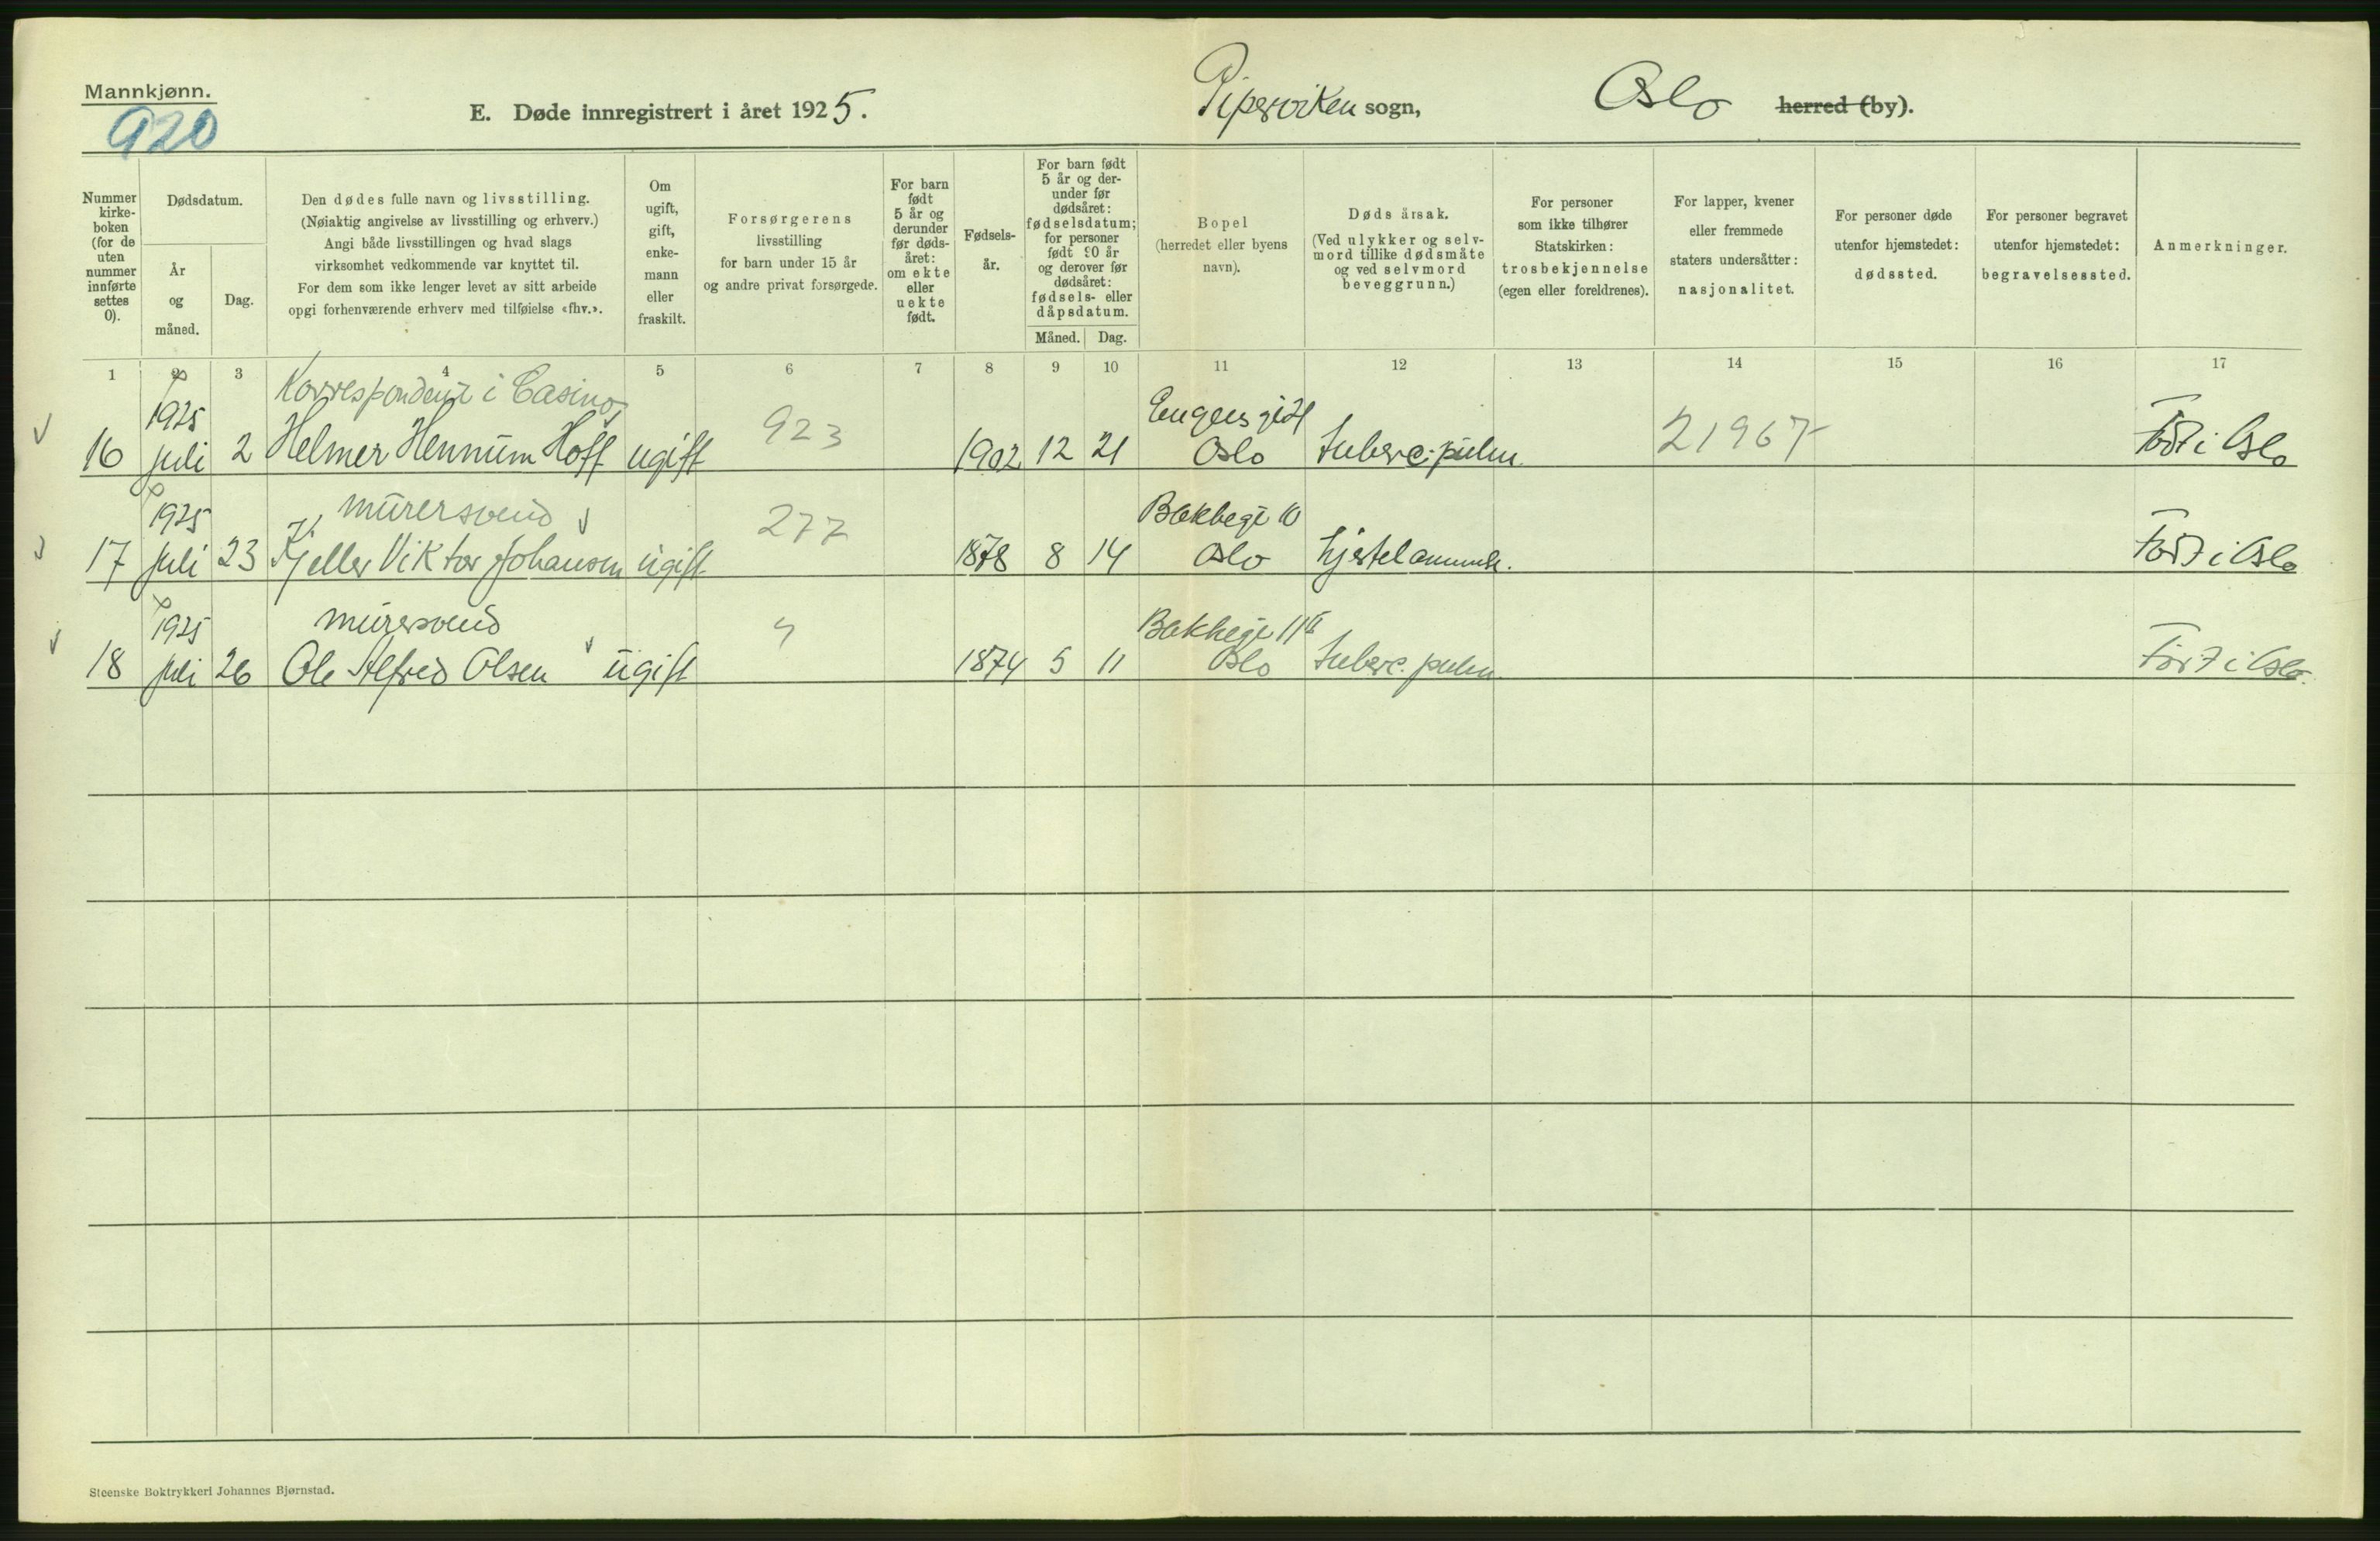 Mannkjønn.
920
E. Døde innregistrert i året 1925. Piperviken sogn, Oslo herred (by).
Nummer
kirke-
boken
(for de
uten
nummer
innførte
settes
0).
Dødsdatum.
År
og
måned.
Dag.
Den dødes fulle navn og livsstilling.
(Nøiaktig angivelse av livsstilling og erhverv.)
Angi både livsstillingen og hvad slags
virksomhet vedkommende var knyttet til.
For dem som ikke lenger levet av sitt arbeide
opgi forhenværende erhverv med tilføielse «fhv.».
Om
ugift,
gift,
enke-
mann
eller
fraskilt.
Forsørgerens
livsstilling
for barn under 15 år
og andre privat forsørgede.
For barn
født
5 år og
derunder
før døds-
året:
om ekte
eller
uekte
født.
Fødsels-
år.
For barn født
5 år og der-
under før
dødsåret:
fødselsdatum;
for personer
født 90 år
og derover før
dødsåret:
fødsels- eller
dåpsdatum.
Måned. Dag.
Bopel
(herredet eller byens
navn).
Dødsårsak.
(Ved ulykker og selv-
mord tillike dødsmåte
og ved selvmord
beveggrunn.)
For personer
som ikke tilhører
Statskirken:
trosbekjennelse
(egen eller foreldrenes).
For lapper, kvener
eller fremmede
staters undersåtter:
nasjonalitet.
For personer døde
utenfor hjemstedet:
dødssted.
For personer begravet
utenfor hjemstedet:
begravelsessted.
Anmerkninger.
1 2 3 4 5 6 7 8 9 10 11 12 13 14 15 16 17
1925 Korrespondent i Casino 923 21967
16 juli 2 Helmer Hennum Hoff ugift 1902 12 21 Oslo Tuberc. pulm. Ført i Oslo
1925 murersvend 277 Bakkegt 10
17 juli 23 Kjeller Viktor Johansen ugift 1878 8 14 Oslo Hjertelammelse. Ført i Oslo
1925 murersvend Bakkegt 11
18 juli 26 Ole Alfred Olsen ugift 1874 5 11 Oslo Tuberc. pulm. Ført i Oslo.
Steenske Boktrykkeri Johannes Bjørnstad.